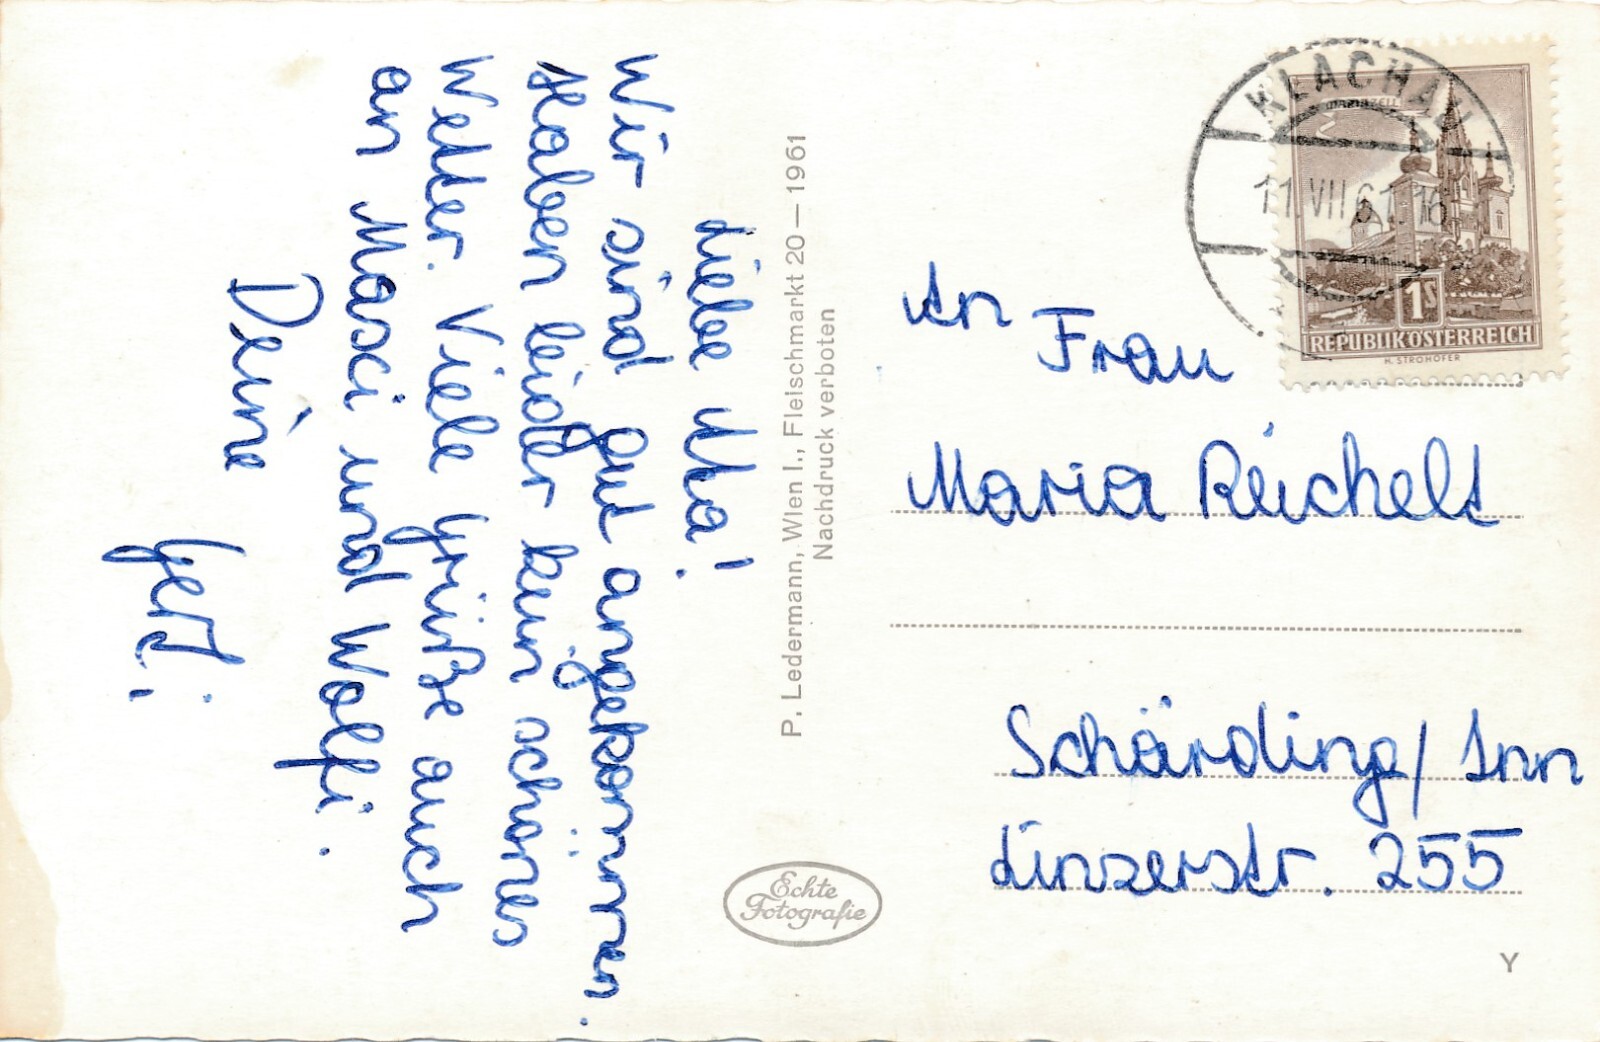 Liebe Uta!
Wir sind gut angekommen.
Haben leider kein schönes
Wetter. Viele Grüße auch
an Masci und Wolfi.
Deine
Gerti
P. Ledermann, Wien I., Fleischmarkt 20—1961
Nachdruck verboten
Echte
Fotografie
KLACHAU
11. VII 61 16
MARIAZELL
1S
REPUBLIK ÖSTERREICH
H. STROHOFER
An
Frau
Maria Reichelt
Schärding/Inn
Linzerstr. 255
Y